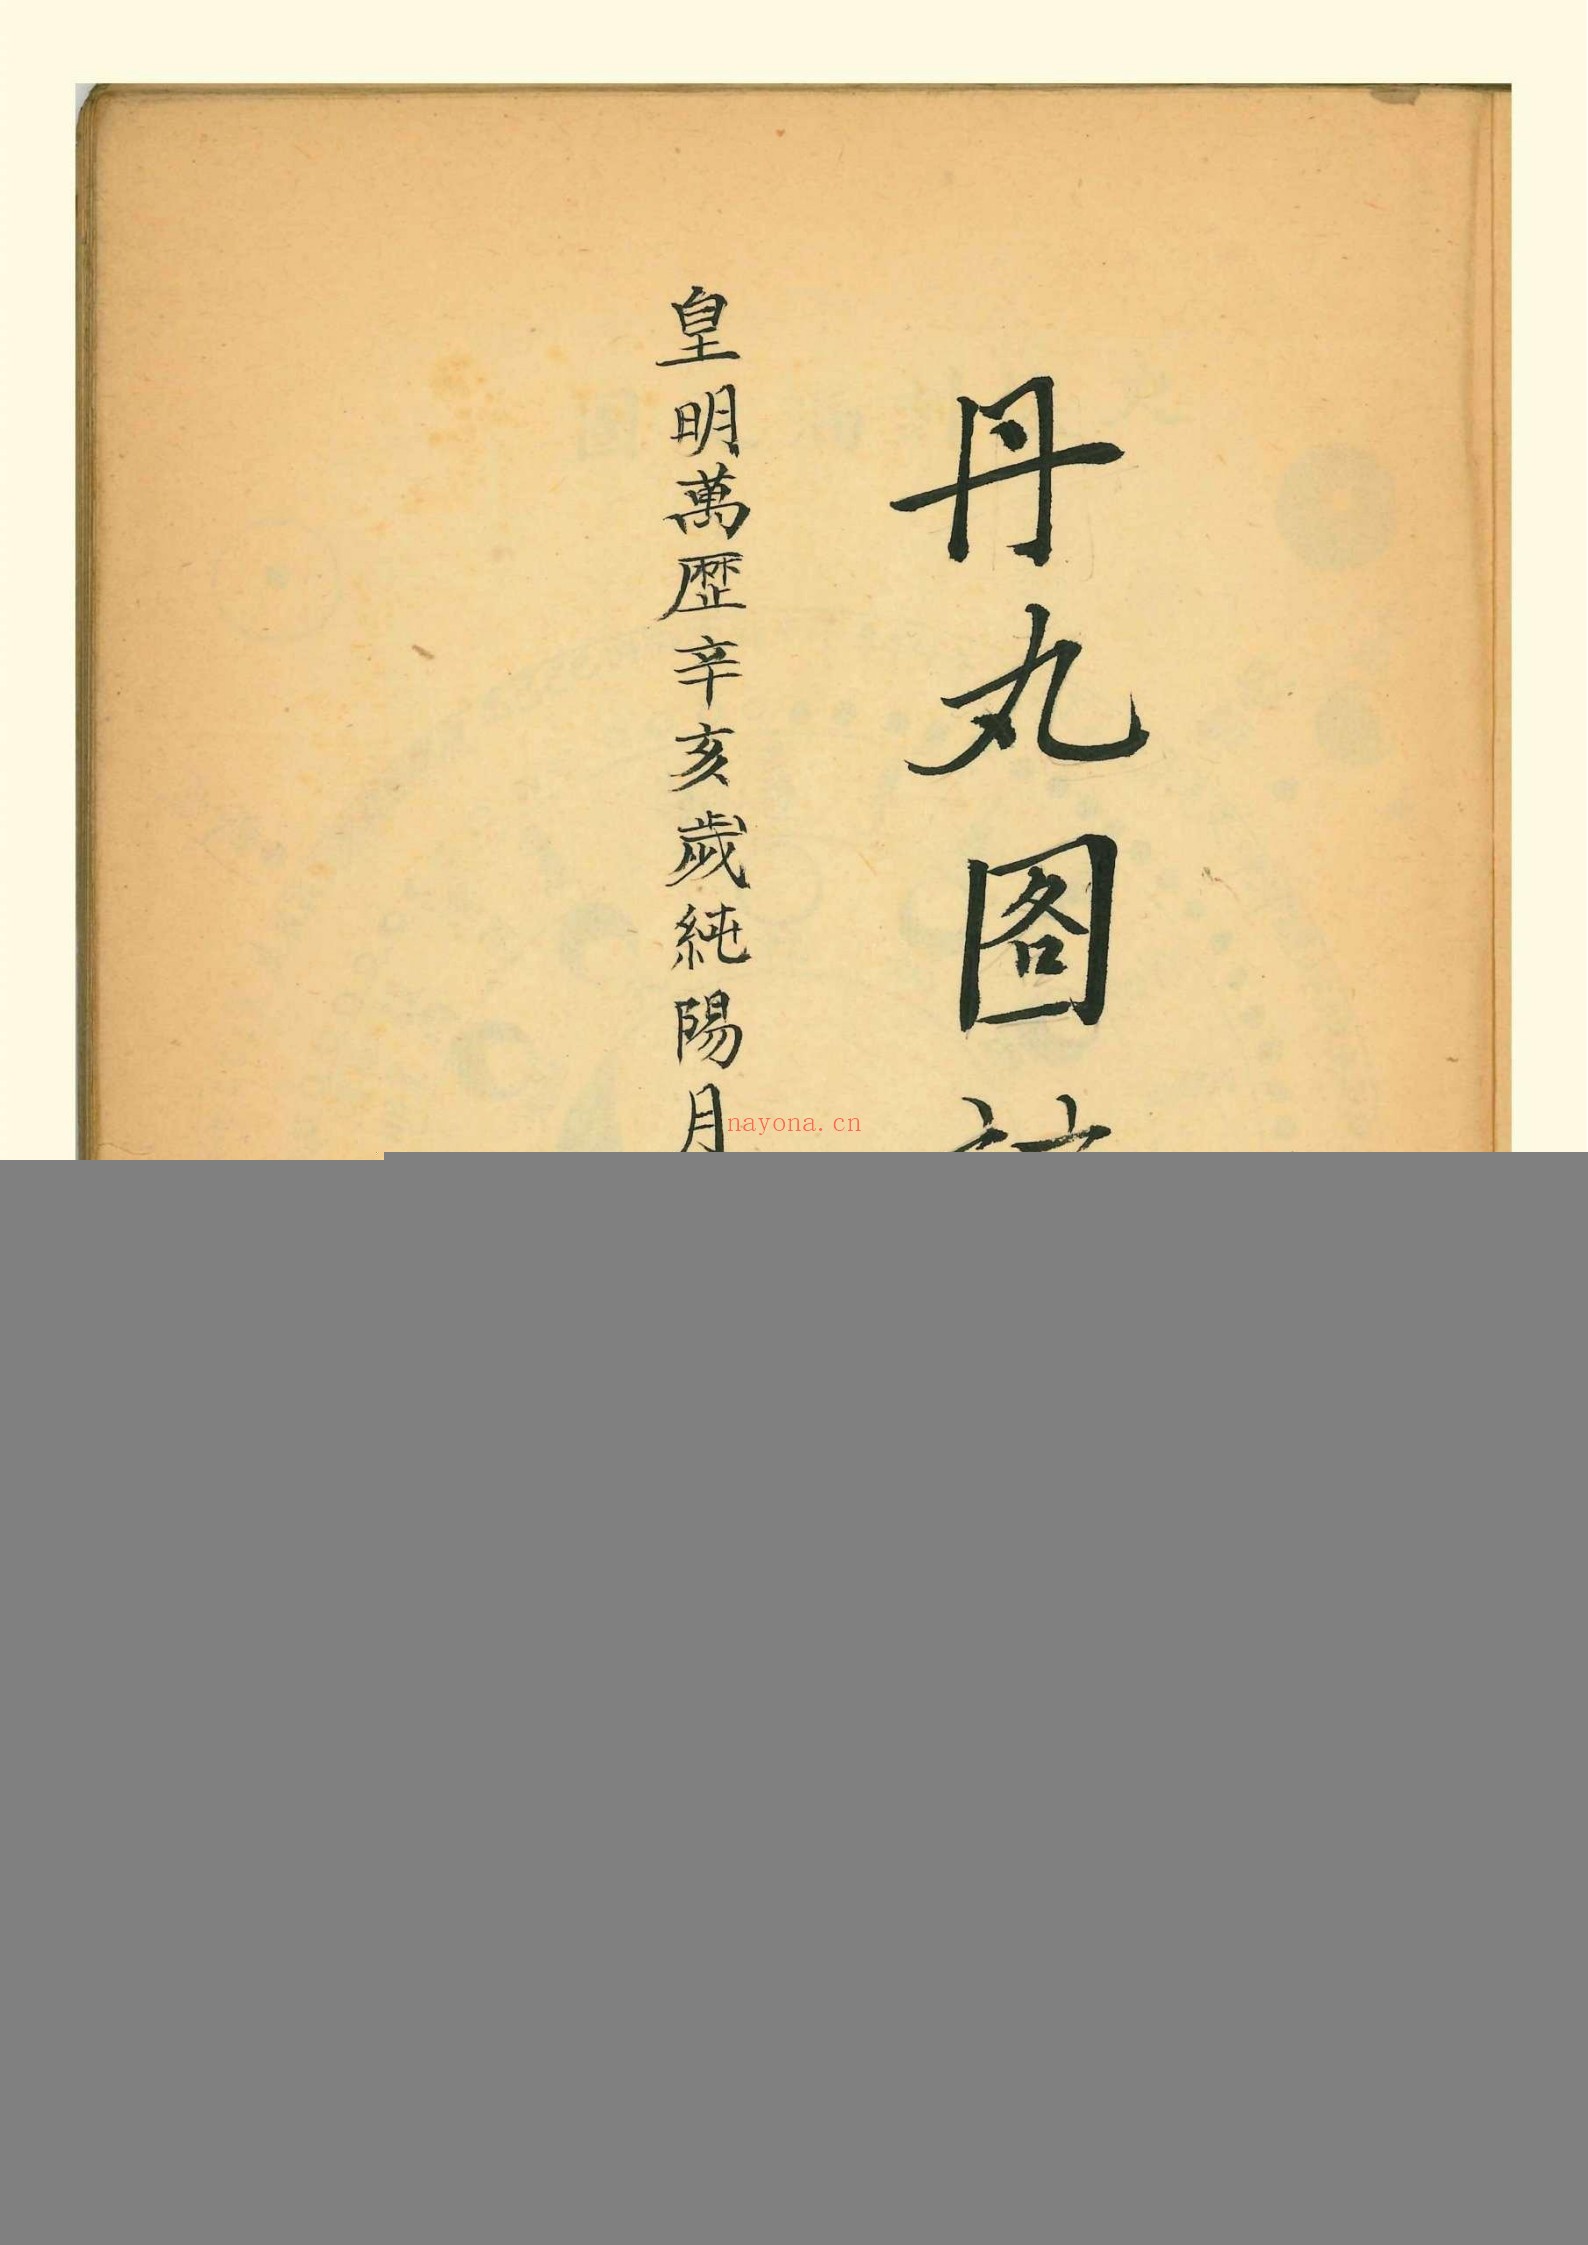 丹丸图
皇明萬歷辛亥歲純陽月
nayona.cn